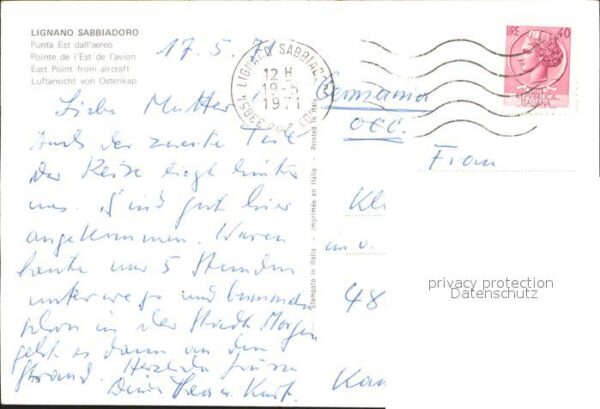 LIGNANO SABBIADORO
Punta Est dall'aereo
Pointe de l'Est de l'avion
East Point from aircraft
Luftansicht von Ostenkap
17.5.71
33054 LIGNANO SABBIADORO (UD)
12 H
18-5
1971
LIRE 40
REPVBBLICA
ITALIANA
Germania
OCC.
Frau
Kl
in v.
48
Kan
Stampato in Italia - Imprimée en Italie - Printed in Italy
Liebe Mutter
Auch der zweite Teil
der Reise liegt hinter
uns. Sind gut hier
angekommen. Waren
heute nur 5 Stunden
unterwegs und bummeln
schon in der Stadt. Morgen
geht es dann an den
Strand. Herzliche Grüsse
Deine Thea u. Kurt.
privacy protection
Datenschutz